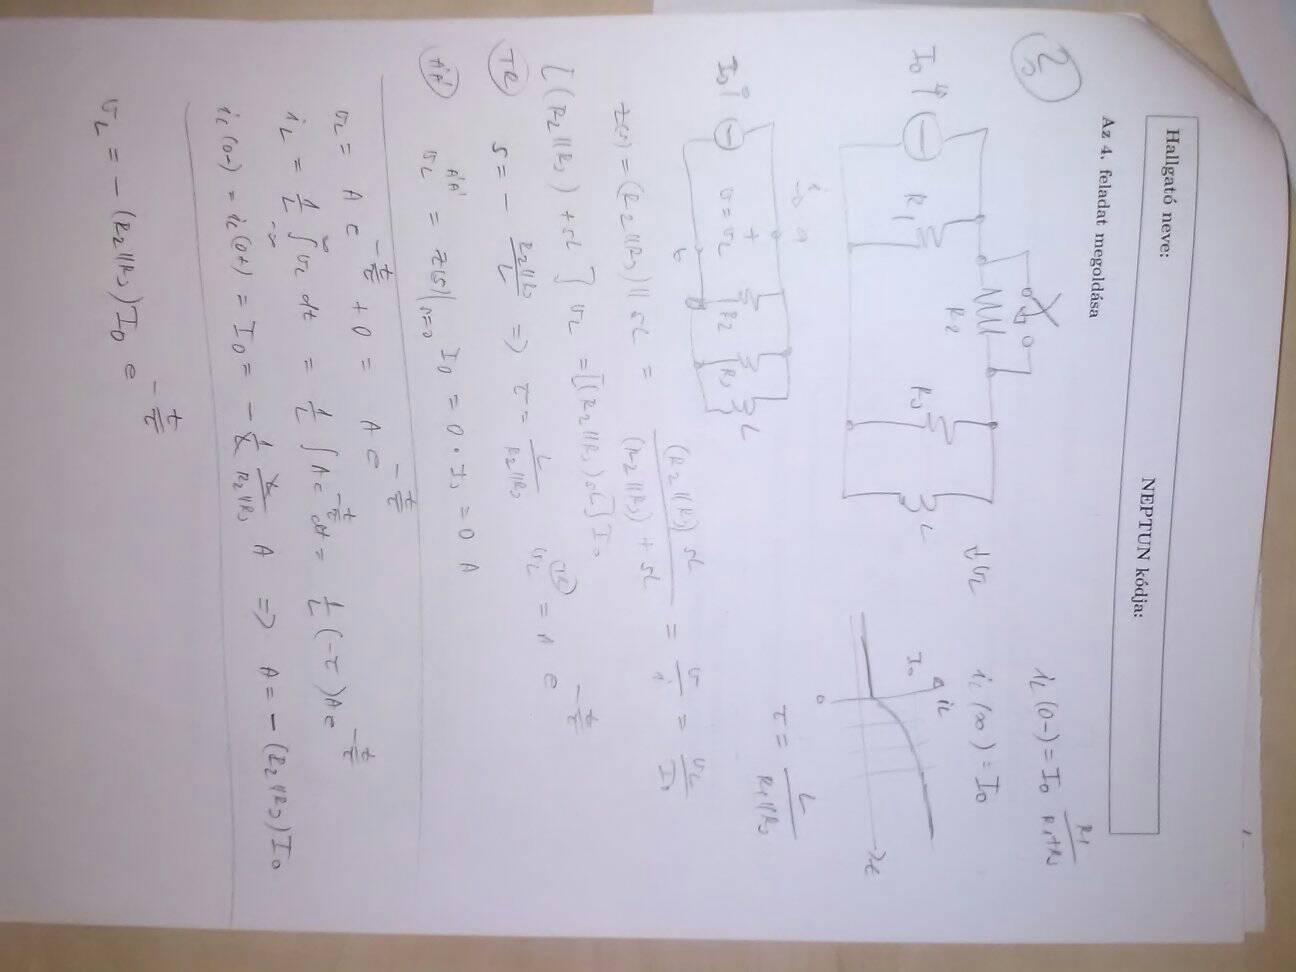 Hallgató neve:
NEPTUN kódja:
Az 4. feladat megoldása
3
I₀
R₁
R₂
R₃
L
v_L
i_L(0-) = I₀ R₁/(R₁+R₂)
i_L(∞) = I₀
I₀
i_L
0
t
τ = L/(R₁||R₃)
I₀
i
a
+
v = v_L
R₂
R₃
L
z(s) = (R₂||R₃)||sL = (R₂||R₃)sL/((R₂||R₃)+sL) = v/i = v_L/I₀
[(R₂||R₃)+sL] v_L = [(R₂||R₃)sL] I₀
TR
s = - (R₂||R₃)/L => τ = L/(R₂||R₃)
v_L^TR = A e^(-t/τ)
ÁÁ
v_L^ÁÁ = z(s)|_(s=0) I₀ = 0 · I₀ = 0 A
v_L = A e^(-t/τ) + 0 = A e^(-t/τ)
i_L = 1/L ∫ v_L dt = 1/L ∫ A e^(-t/τ) dt = 1/L (-τ) A e^(-t/τ)
i_L(0-) = i_L(0+) = I₀ = - 1/L L/(R₂||R₃) A => A = - (R₂||R₃) I₀
v_L = - (R₂||R₃) I₀ e^(-t/τ)